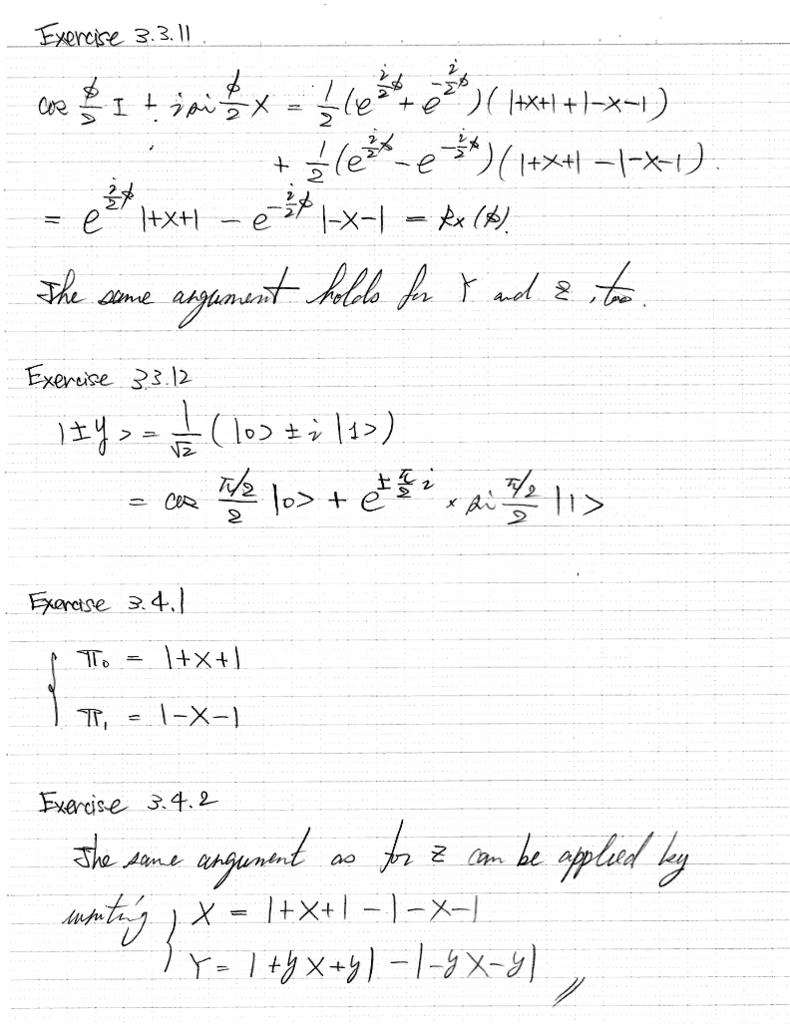 Exercise 3.3.11.
cos φ/2 I + i sin φ/2 X = 1/2 (e^{i/2 φ} + e^{-i/2 φ}) (|+X+| + |-X-|)
+ 1/2 (e^{i/2 φ} - e^{-i/2 φ}) (|+X+| - |-X-|).
= e^{i/2 φ} |+X+| - e^{-i/2 φ} |-X-| = Rx (φ).
The same argument holds for Y and Z, too.
Exercise 3.3.12
|±y> = 1/√2 (|0> ± i |1>)
= cos (π/2)/2 |0> + e^{± π/2 i} × sin (π/2)/2 |1>
Exercise 3.4.1
{ Π₀ = |+X+|
Π₁ = |-X-|
Exercise 3.4.2
The same argument as for Z can be applied by
writing { X = |+X+| - |-X-|
Y = |+yX+y| - |-yX-y| //